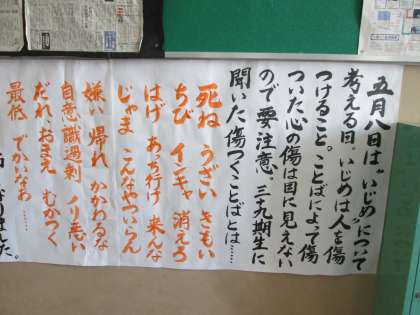 五月八日は“いじめ”について
考える日。いじめは人を傷
つけること。ことばによって傷
ついた心の傷は目に見えない
ので要注意。三十九期生に
聞いた傷つくことばとは……
死ね うざい きもい
ちび インキャ 消えろ
はげ あっち行け 来んな
じゃま こんなやついらん
嫌い 帰れ かかわるな
自意識過剰 ノリ悪い
だれ、おまえ むかつく
最低 でかいなぁ……